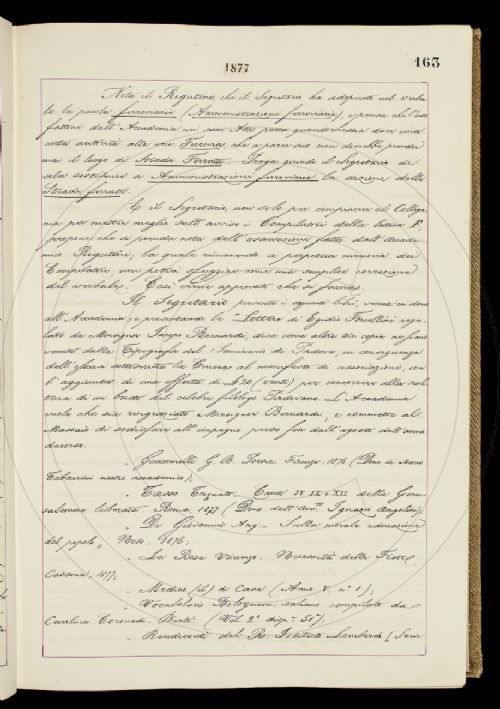 1877
163
Nota il Rigutini, che il Segretario ha adoperato nel verba-
le la parola ferroviario (Amministrazioni ferroviarie), e pensa che l'uso
fattone dall'Accademia in un suo Atto possa quandochessia dare una
certa autorità alla voce Ferrovia che a parer suo non dovrebbe prender
mai il luogo di Strada Ferrata. Prega quindi il Segretario di
voler sostituire a Amministrazioni ferroviarie la dizione delle
Strade ferrate.
E il Segretario, non solo per compiacere il Collega,
ma per mettere meglio sull'avviso i Compilatori della lettera F,
propone che si prenda nota dell'osservazione fatta dall'Accade-
mico Rigutini, la quale rimanendo a perpetua memoria dei
Compilatori, non potrà sfuggire come una semplice correzione
del verbale. Così viene approvato che si faccia.
Il Segretario presenta i seguenti libri, venuti in dono
all'Accademia; e presentando le "Lettere di Egidio Forcellini rega-
late da Monsignor Jacopo Bernardi, dice come altre tre copie ne sono
venute dalla Tipografia del Seminario di Padova in conseguenza
dell'essersi sottoscritta la Crusca al manifesto di associazione, con
l'aggiunta di una offerta di L. 20 (venti) per concorrere alla scul-
tura di un busto del celebre filologo Padovano. L'Accademia
vuole che sia ringraziato Monsignor Bernardi, e commette al
Massaio di soddisfare all'impegno preso fin dall'agosto dell'anno
decorso.
" Giacomelli G. B. Poesie. Firenze, 1876 (Dono di Marco
Tabarrini nostro accademico);
" Tasso Torquato. Canti IV IX e XII della Geru-
salemme liberata. Roma, 1877 (Dono dell'Avv.to Ignazio Angelini);
" De Giovanni Ang. Sulla morale educazione
del popolo. Noto, 1876;
" La Rosa Vincenzo. Necessità della Fisse
Catania, 1877;
" Medico (il) di Casa (Anno V. n.° 1);
" Vocabolario Bolognese italiano compilato da
Carolina Coronedi-Berti. (Vol. 2° disp.e 51a);
" Rendiconti del R. Istituto Lombardo (Serie